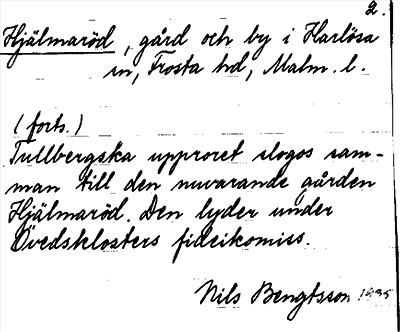 2.
Hjälmaröd, gård och by i Harlösa
sn, Frosta hd, Malm. l.
(forts.)
Tullbergska upproret slogos sam-
man till den nuvarande gården
Hjälmaröd. Den lyder under
Övedsklosters fideikomiss.
Nils Bengtsson 1935